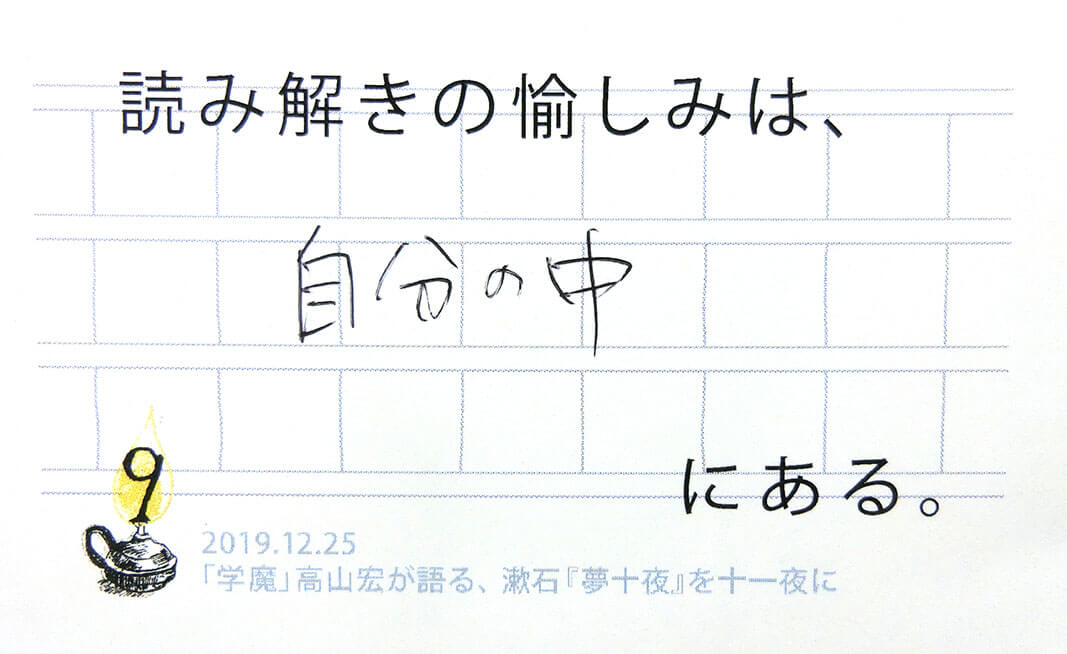 読み解きの愉しみは、
自分の中
にある。
9
2019.12.25
「学魔」高山宏が語る、漱石『夢十夜』を十一夜に